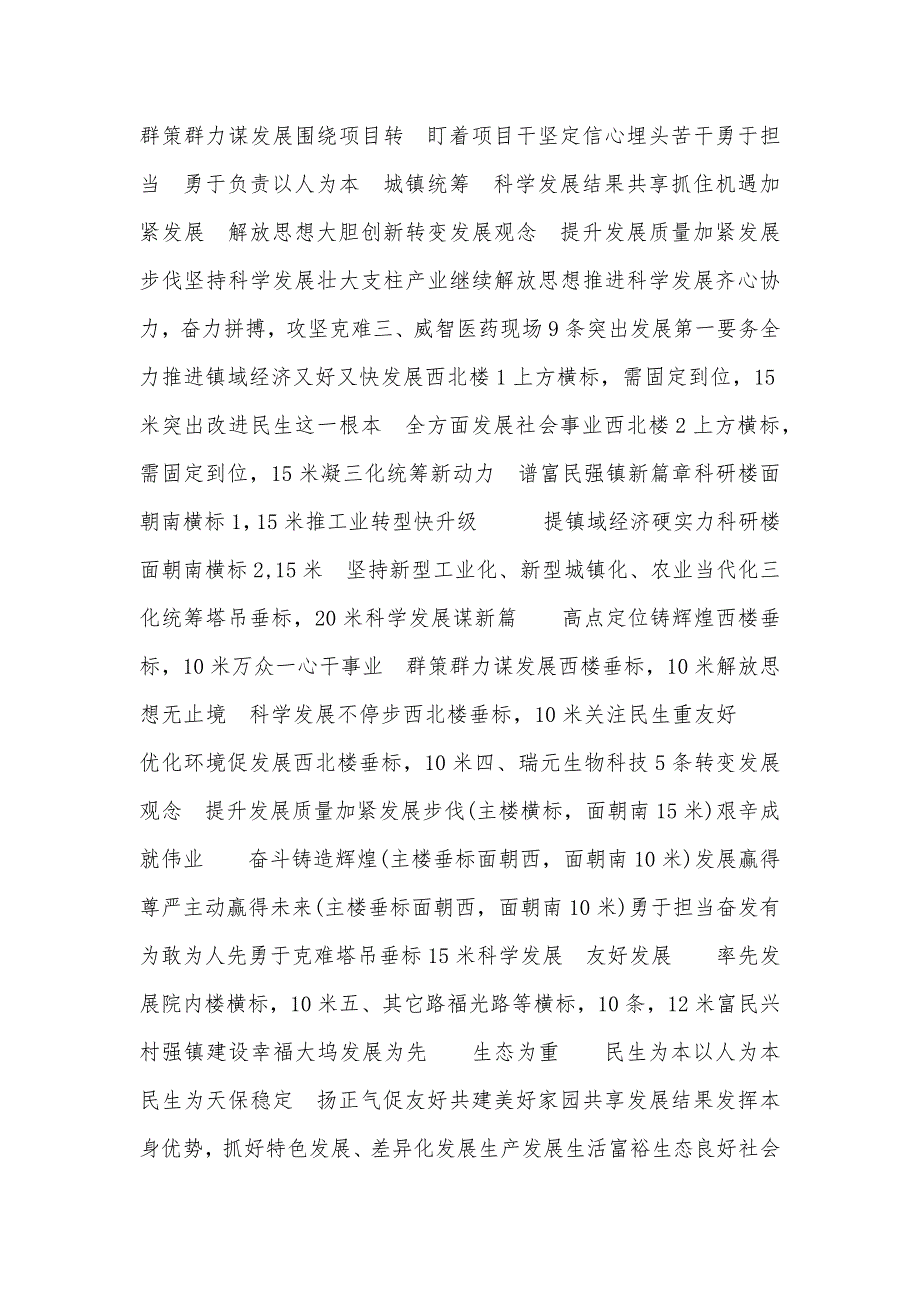 群策群力谋发展围绕项目转　盯着项目干坚定信心埋头苦干勇于担
当　勇于负责以人为本　城镇统筹　科学发展结果共享抓住机遇加
紧发展　解放思想大胆创新转变发展观念　提升发展质量加紧发展
步伐坚持科学发展壮大支柱产业继续解放思想推进科学发展齐心协
力，奋力拼搏，攻坚克难三、威智医药现场 9 条突出发展第一要务全
力推进镇域经济又好又快发展西北楼 1 上方横标，需固定到位，15
米突出改进民生这一根本　全方面发展社会事业西北楼 2 上方横标，
需固定到位，15 米凝三化统筹新动力　谱富民强镇新篇章科研楼面
朝南横标 1,15 米推工业转型快升级　　　提镇域经济硬实力科研楼
面朝南横标 2,15 米　坚持新型工业化、新型城镇化、农业当代化三
化统筹塔吊垂标，20 米科学发展谋新篇　　高点定位铸辉煌西楼垂
标，10 米万众一心干事业　群策群力谋发展西楼垂标，10 米解放思
想无止境　科学发展不停步西北楼垂标，10 米关注民生重友好
优化环境促发展西北楼垂标，10 米四、瑞元生物科技 5 条转变发展
观念　提升发展质量加紧发展步伐(主楼横标，面朝南 15 米)艰辛成
就伟业　　奋斗铸造辉煌(主楼垂标面朝西，面朝南 10 米)发展赢得
尊严主动赢得未来(主楼垂标面朝西，面朝南 10 米)勇于担当奋发有
为敢为人先勇于克难塔吊垂标 15 米科学发展　友好发展　　率先发
展院内楼横标，10 米五、其它路福光路等横标，10 条，12 米富民兴
村强镇建设幸福大坞发展为先　　生态为重　　民生为本以人为本
民生为天保稳定　扬正气促友好共建美好家园共享发展结果发挥本
身优势，抓好特色发展、差异化发展生产发展生活富裕生态良好社会